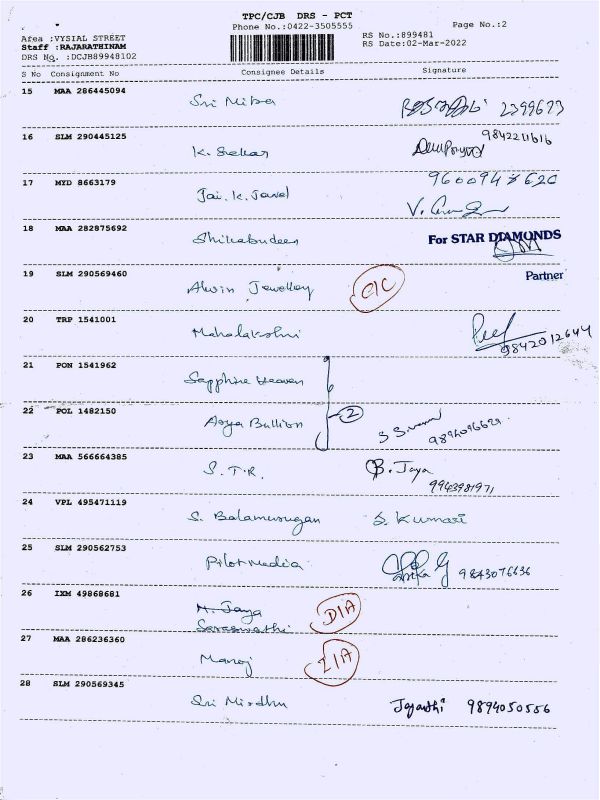 TPC/CJB DRS - PCT
Phone No.:0422-3505555
Page No.:2
Area :VYSIAL STREET
RS No.:899481
Staff :RAJARATHINAM
RS Date:02-Mar-2022
DRS No. :DCJB89948102
S No Consignment No Consignee Details Signature
15 MAA 286445094
Sri Mitra 2399673
16 SLM 290445125 9842211616
K. Sekar
17 MYD 8663179
Jai. K. Jewel
18 MAA 282875692
Shihabudeen For STAR DIAMONDS
19 SLM 290569460 Partner
Alwin Jewellery
20 TRP 1541001
Mahalakshmi 9842012644
21 PON 1541962
Sapphire Heaven
22 POL 1482150 2
Arya Bullion
23 MAA 566664385
S.T.R. B. Jaya
9943981971
24 VPL 495471119
S. Balamurugan S. Kumari
25 SLM 290562753
Pilot Media 9843076636
26 IXM 49868681
M. Jaya D/A
Saraswathi
27 MAA 286236360
Manoj
28 SLM 290569345
Sri Mirdhu Jayanthi 9894050556